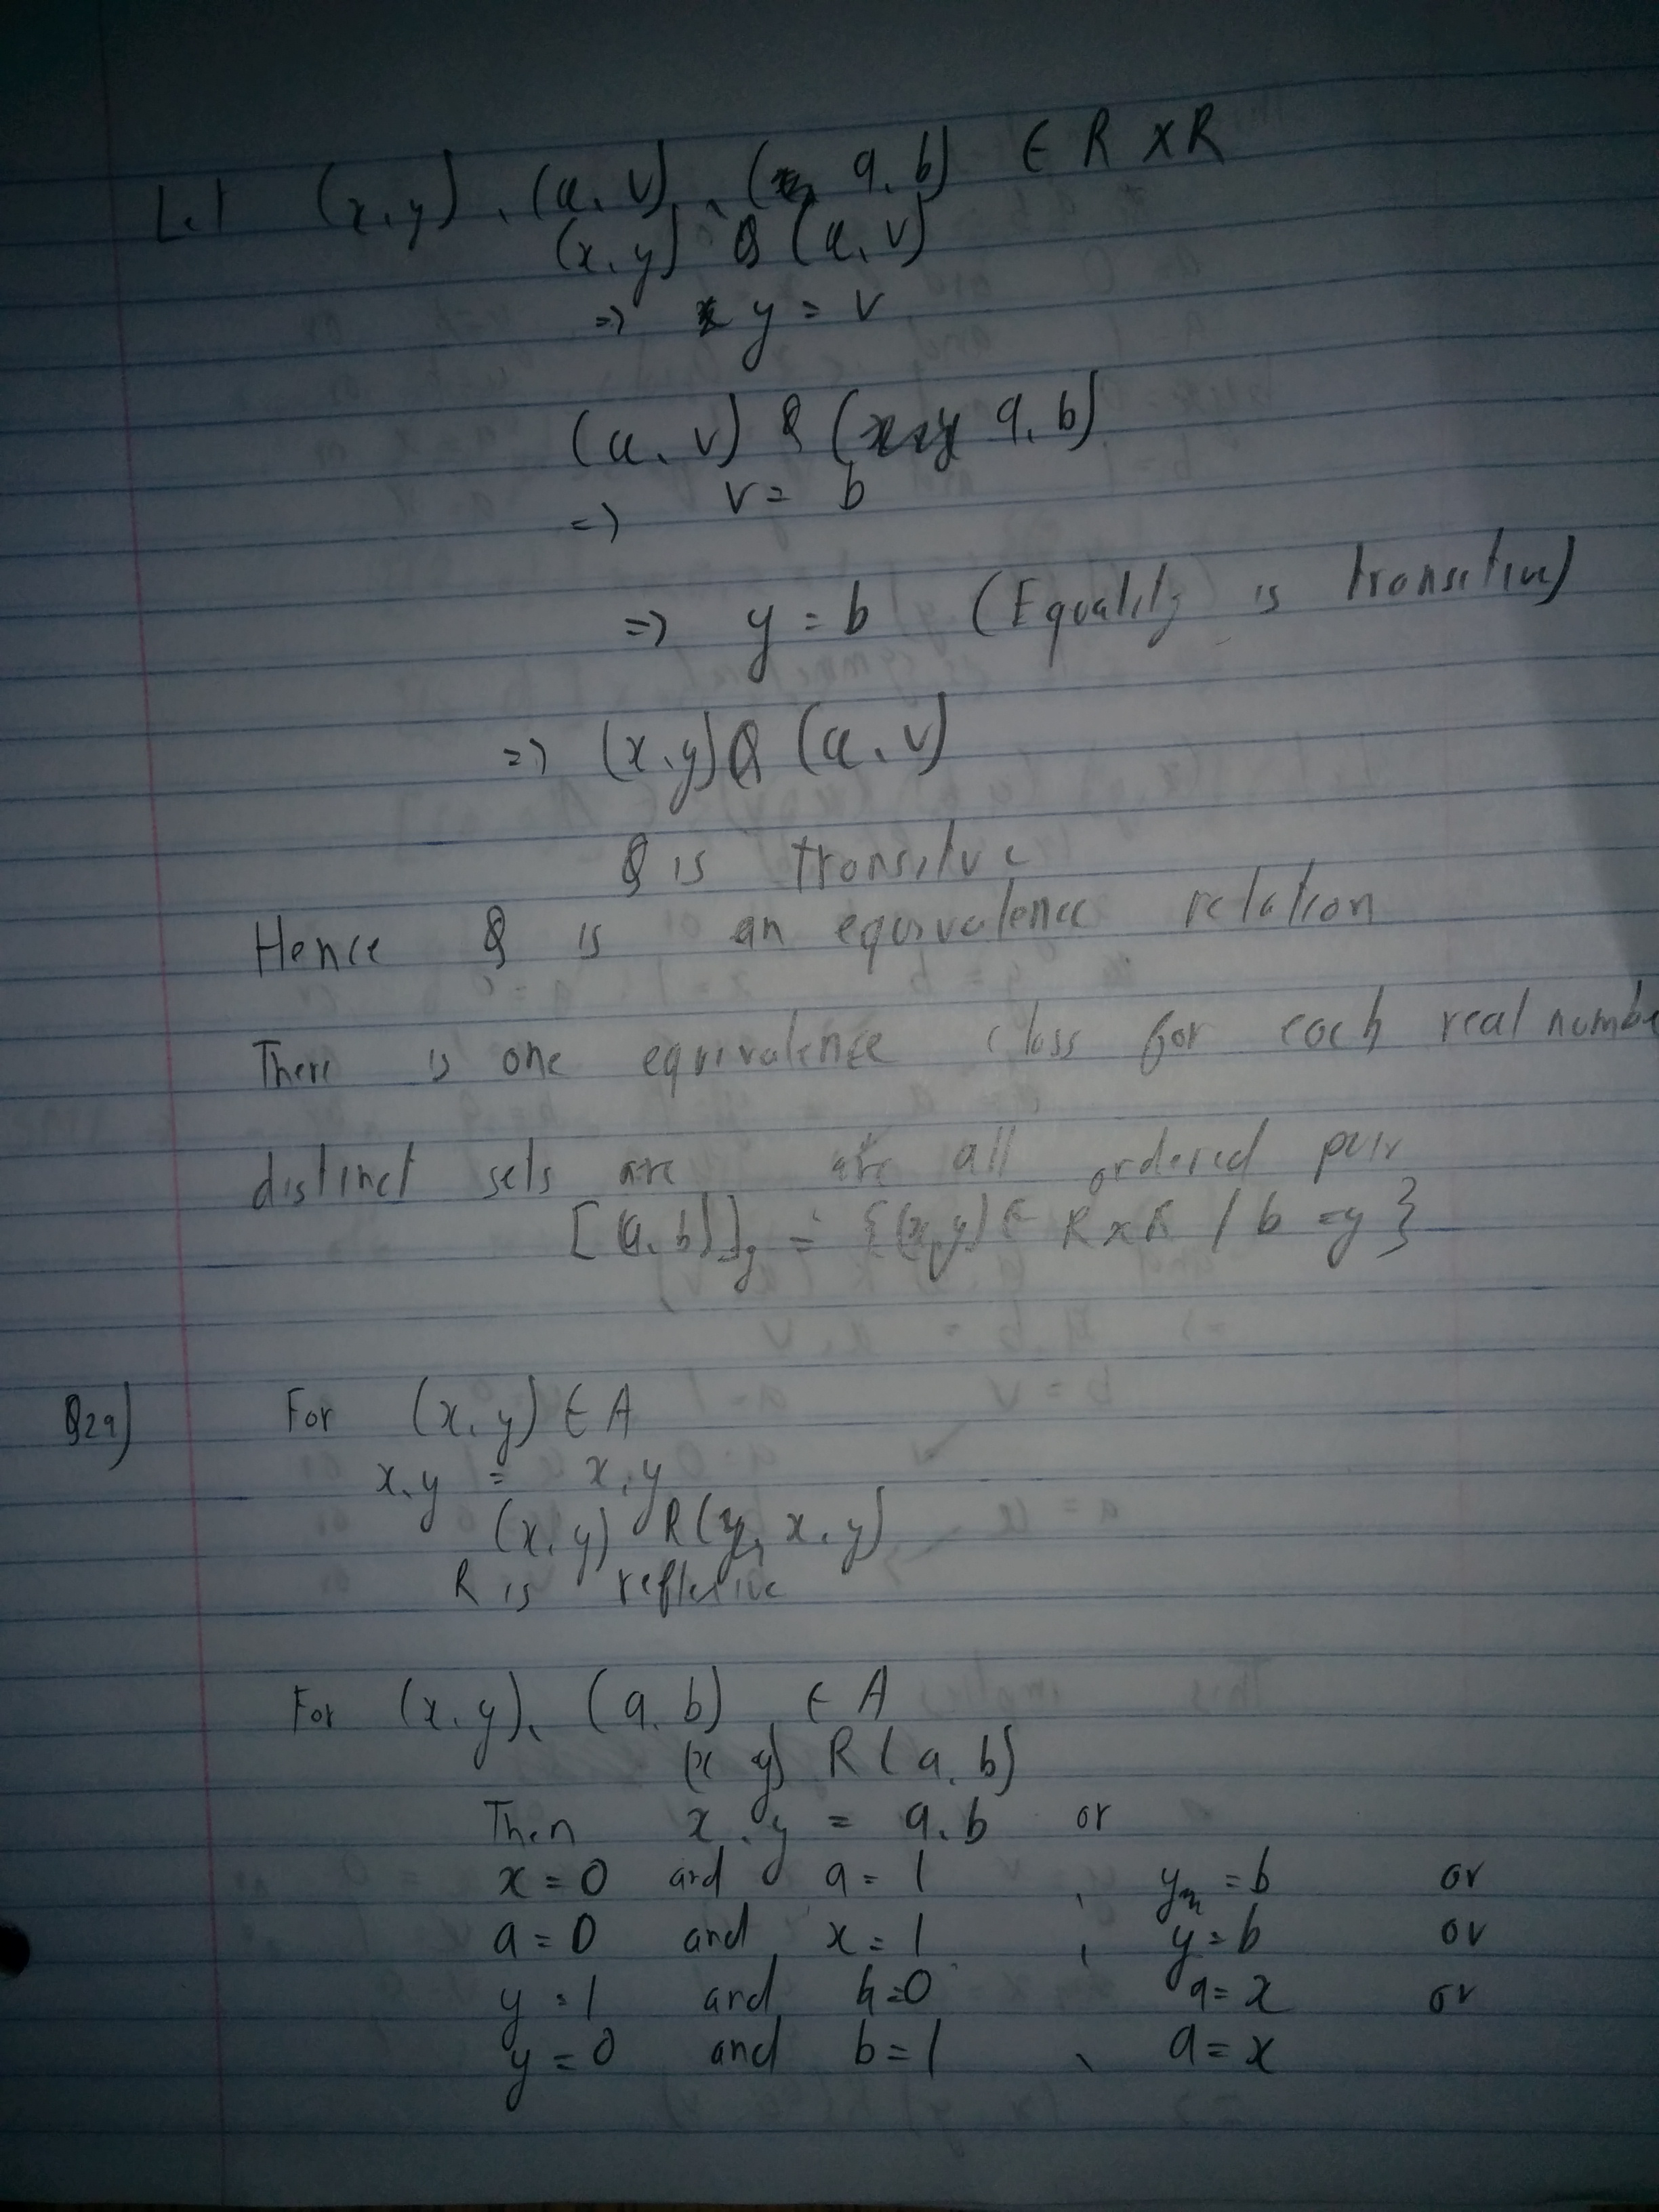 Let (x, y), (u, v), (a, b) ∈ R X R
(x, y) Q (u, v)
=> y = v
(u, v) Q (a, b)
=> v = b
=> y = b (Equality is transitive)
=> (x, y) Q (u, v)
Q is transitive
Hence Q is an equivalence relation
There is one equivalence class for each real numbe
distinct sets are are all ordered pair
[(a, b)] = {(x, y) ∈ R x R / b = y}
Q2a) For (x, y) ∈ A
x, y = x, y
(x, y) R (x, y)
R is reflexive
For (x, y), (a, b) ∈ A
(x y) R (a, b)
Then x, y = a, b or
x = 0 and a = 1 , y = b or
a = 0 and x = 1 , y = b or
y = 1 and b = 0 a = x or
y = 0 and b = 1 , a = x